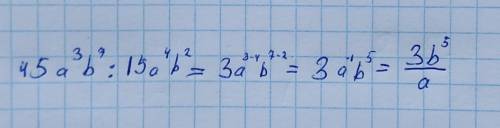 45a³b⁷ : 15a⁴b² = 3a³⁻⁴b⁷⁻² = 3a⁻¹b⁵ = 3b⁵/a